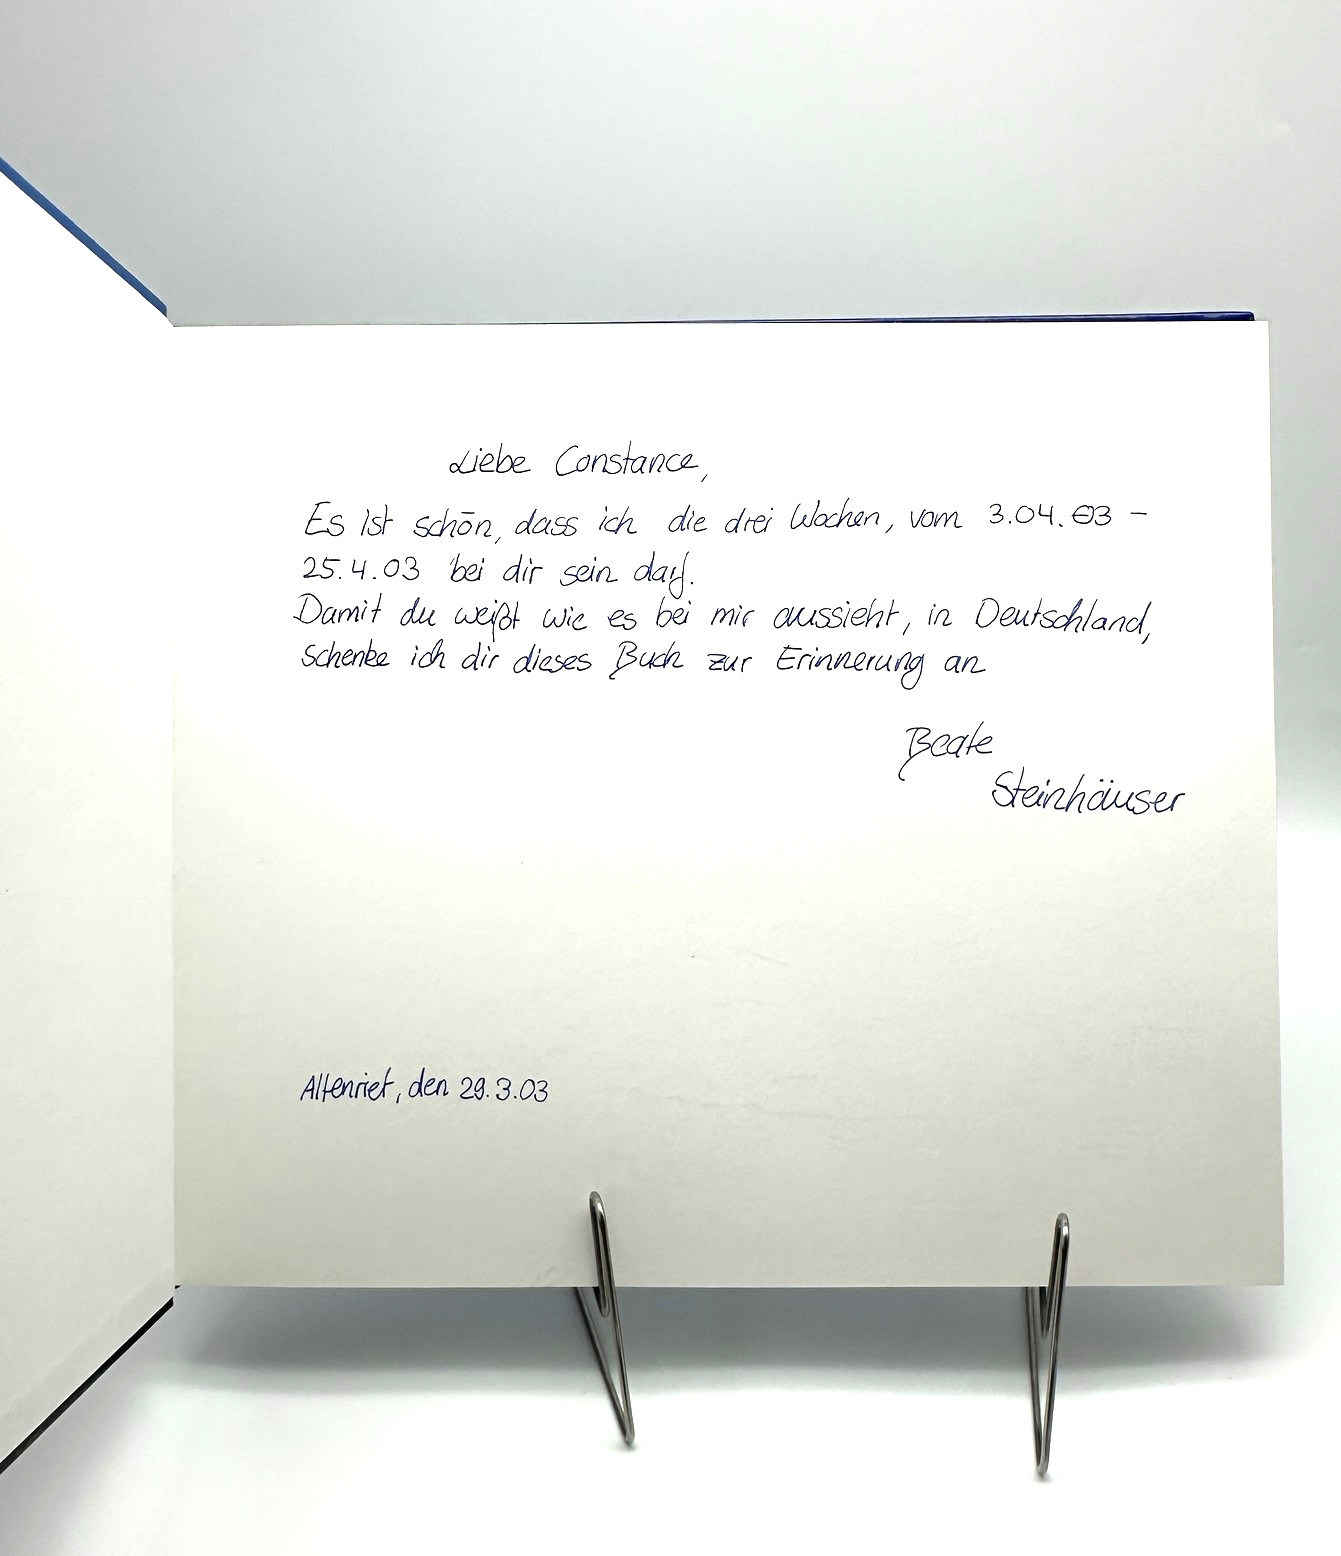 Liebe Constance,
Es ist schön, dass ich die drei Wochen, vom 3.04.03 -
25.4.03 bei dir sein darf.
Damit du weißt wie es bei mir aussieht, in Deutschland,
schenke ich dir dieses Buch zur Erinnerung an
Beate
Steinhäuser
Altenriet, den 29.3.03